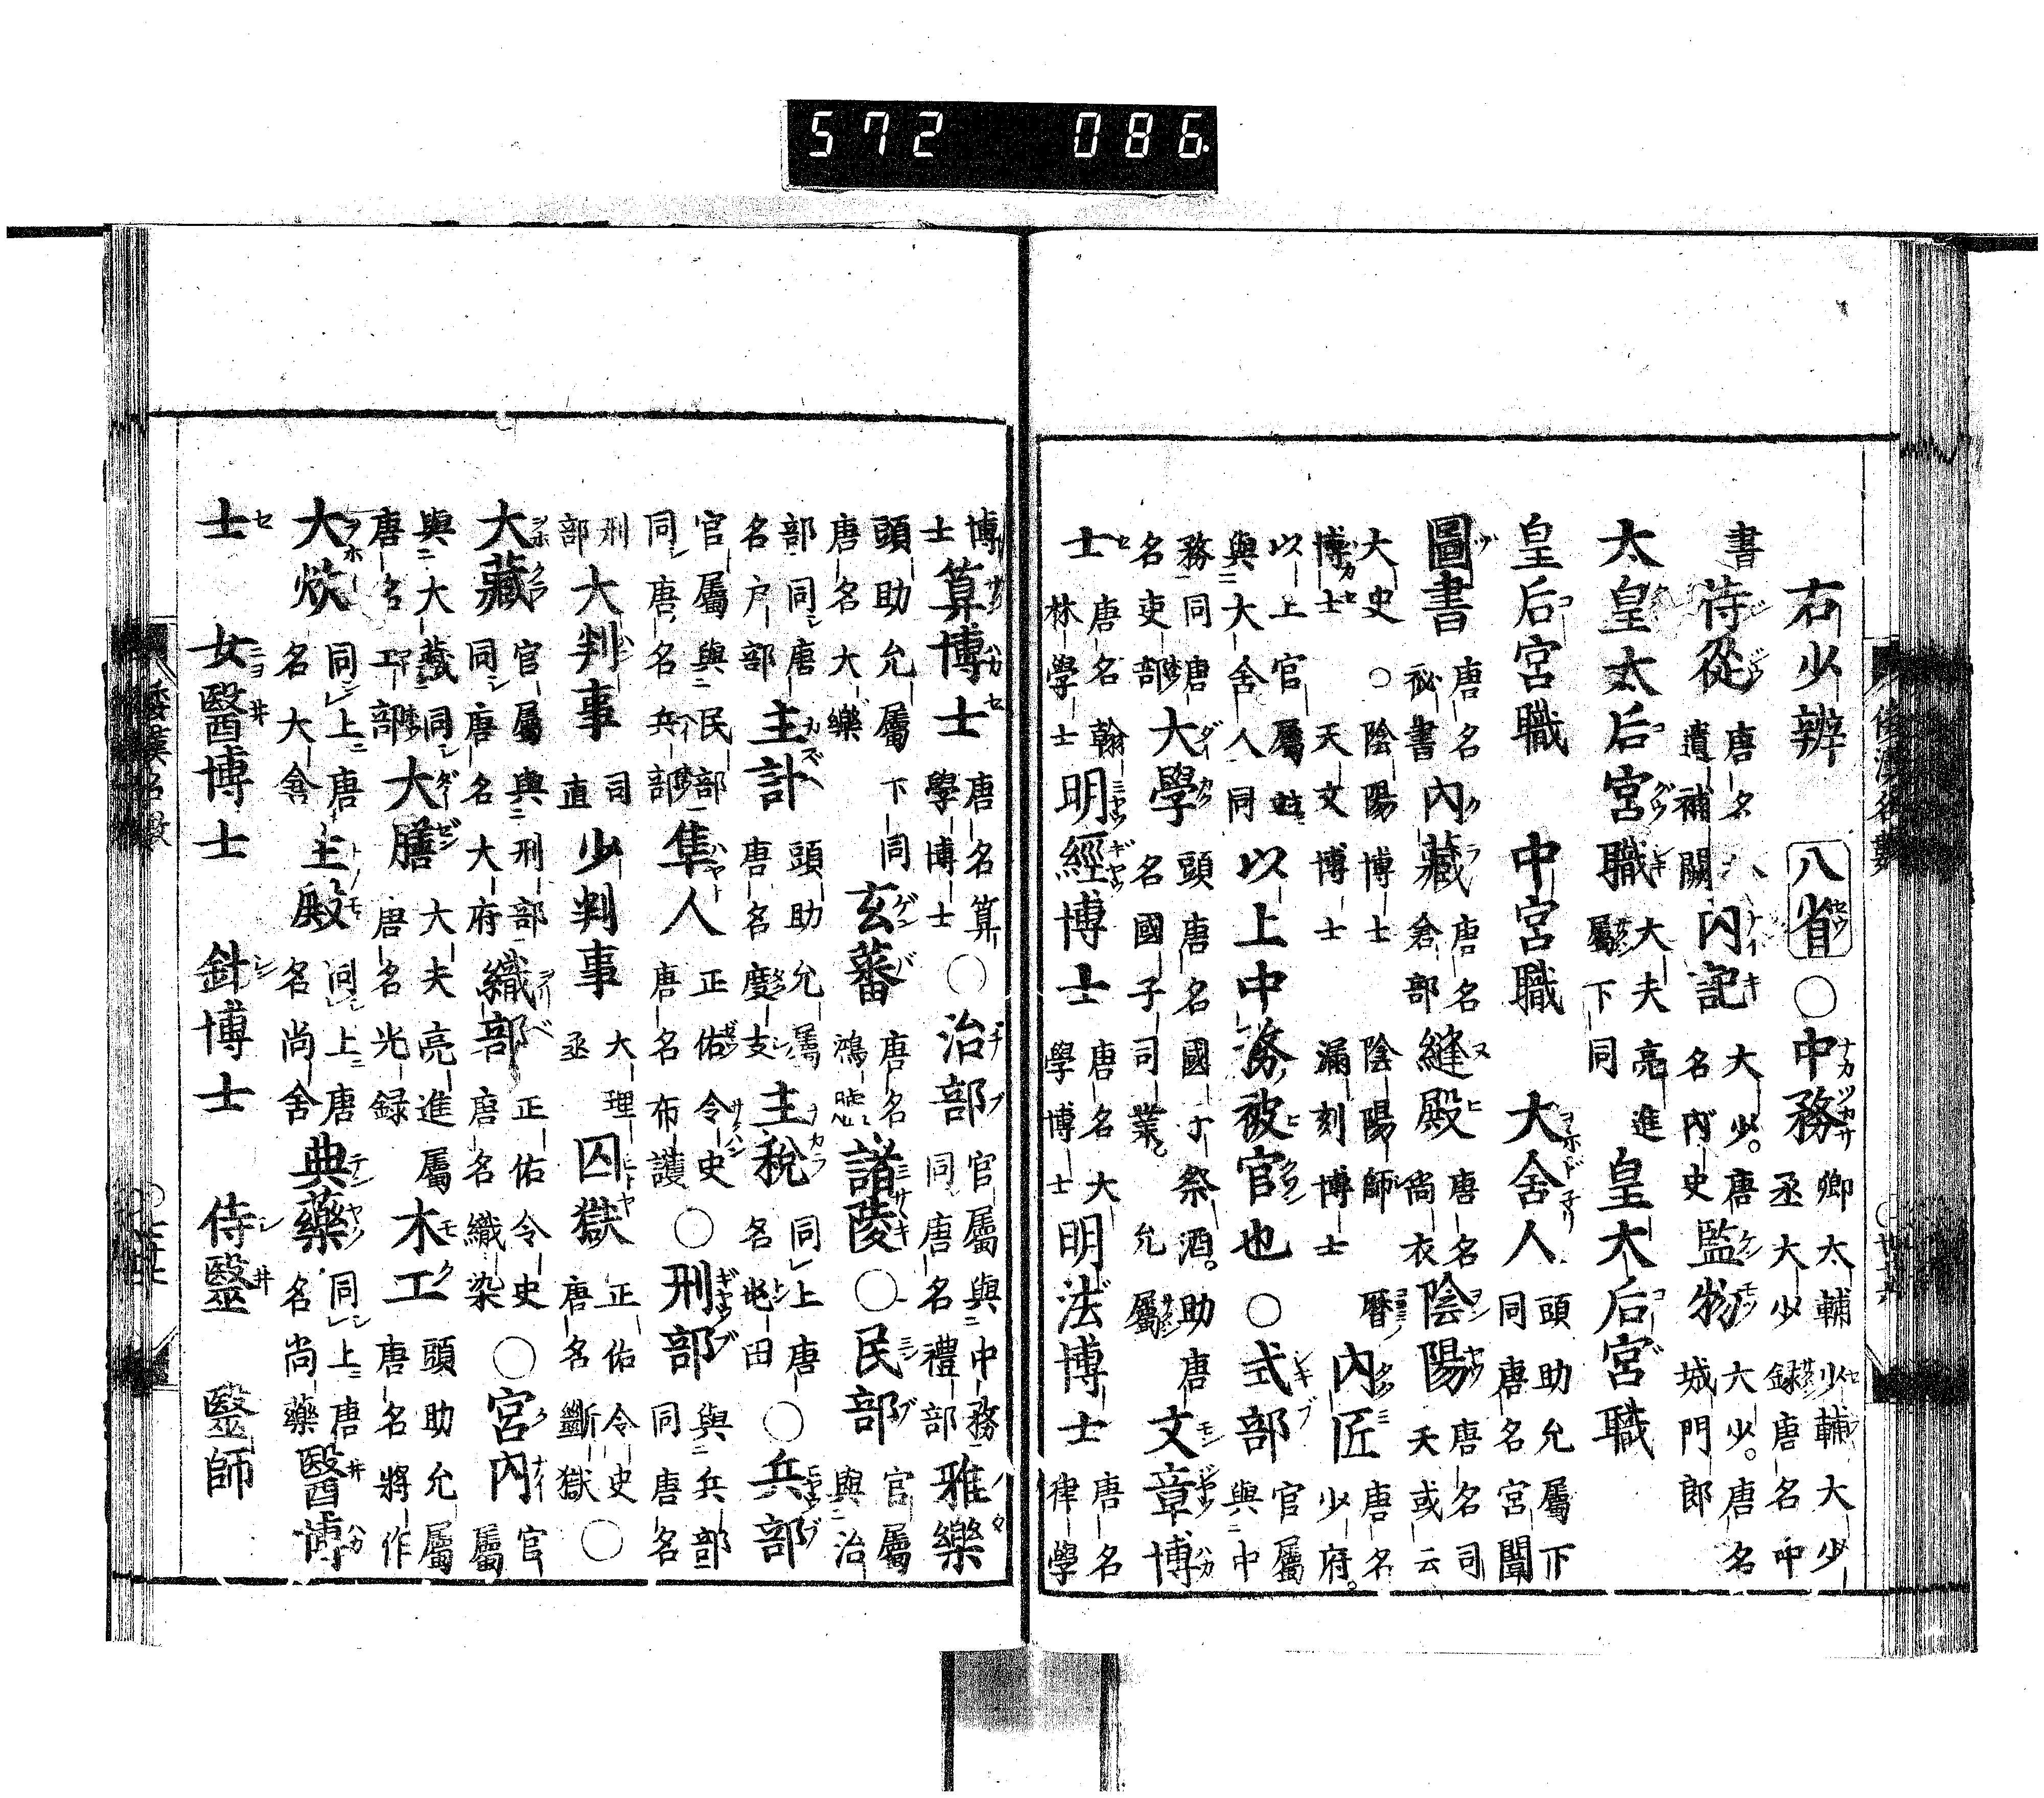 572 086
右少辨 八省 ○中務 卿大輔少輔大少丞大少録唐名中
書 侍從 唐名拾遺補闕 内記 大少。唐名内史 監物 大少。唐名城門郎
太皇太后宮職 大夫亮進屬下同 皇太后宮職
皇后宮職 中宮職 大舍人 頭助允屬下同唐名宮闈
圖書 唐名秘書 内藏 唐名倉部 縫殿 唐名尚衣 陰陽 唐名司天或云
大史 ○陰陽博士 陰陽師 曆博士 天文博士 漏刻博士 内匠 唐名少府。
以上官屬與大舍人同 以上中務被官也 ○式部 官屬與中
務同唐名吏部 大學 頭唐名國子祭酒。助唐名國子司業。允屬 文章博
士 唐名翰林學士 明經博士 唐名大學博士 明法博士 唐名律學
博士 算博士 唐名算學博士 ○治部 官屬與中務同唐名禮部 雅樂
頭助允屬下同唐名大樂 玄蕃 唐名鴻臚 諸陵 ○民部 官屬與治
部同唐名戸部 主計 頭助允屬唐名度支 主税 同上唐名屯田 ○兵部
官屬與民部同唐名兵部 隼人 正佑令史唐名布護 ○刑部 與兵部同唐名
刑部 大判事 司直 少判事 大理丞 囚獄 正佑令史唐名斷獄 ○
大藏 官屬與刑部同唐名大府 織部 正佑令史唐名織染 ○宮内 官屬
與大藏同唐名工部 大膳 大夫亮進屬唐名光録 木工 頭助允屬唐名將作
大炊 同上唐名大倉 主殿 同上唐名尚舍 典藥 同上唐名尚藥 醫博
士 女醫博士 針博士 侍毉 毉師